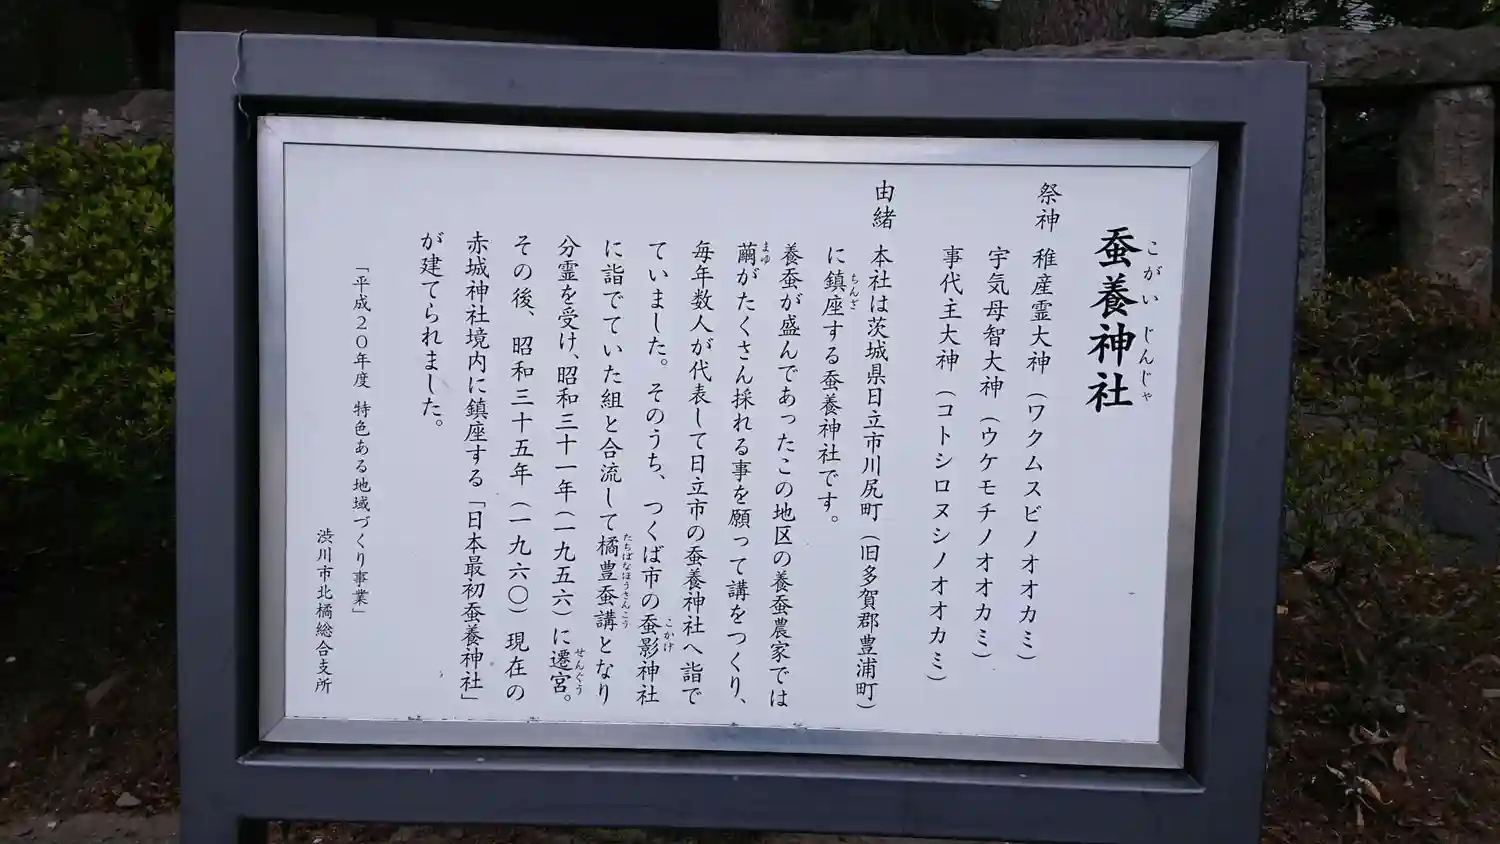 蚕養神社
こがい じんじゃ
祭神 稚産霊大神（ワクムスビノオオカミ）
宇気母智大神（ウケモチノオオカミ）
事代主大神（コトシロヌシノオオカミ）
由緒 本社は茨城県日立市川尻町（旧多賀郡豊浦町）
に鎮座する蚕養神社です。
ちんざ
養蚕が盛んであったこの地区の養蚕農家では
繭がたくさん採れる事を願って講をつくり、
まゆ
毎年数人が代表して日立市の蚕養神社へ詣で
ていました。そのうち、つくば市の蚕影神社
こかけ
に詣でていた組と合流して橘豊蚕講となり
たちばなほうさんこう
分霊を受け、昭和三十一年（一九五六）に遷宮。
せんぐう
その後、昭和三十五年（一九六〇）現在の
赤城神社境内に鎮座する「日本最初蚕養神社」
が建てられました。
「平成２０年度 特色ある地域づくり事業」
渋川市北橘総合支所